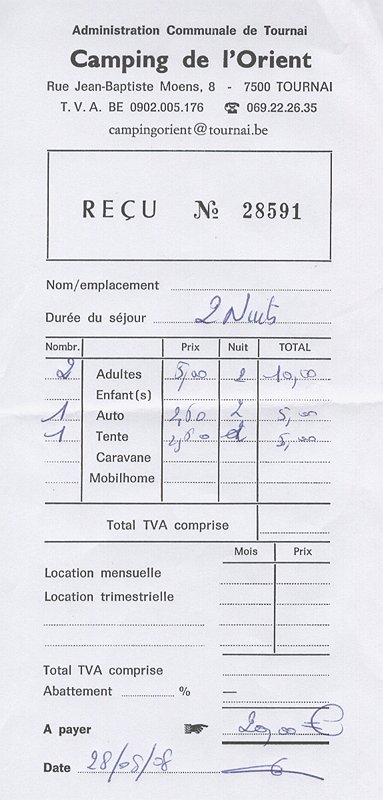 Administration Communale de Tournai
Camping de l'Orient
Rue Jean-Baptiste Moens, 8 - 7500 TOURNAI
T. V. A. BE 0902.005.176 ☎ 069.22.26.35
campingorient@tournai.be
REÇU № 28591
Nom/emplacement
Durée du séjour 2 Nuits
Nombr. Prix Nuit TOTAL
2 Adultes 5,00 2 10,00
Enfant(s)
1 Auto 2,50 2 5,00
1 Tente 2,50 2 5,00
Caravane
Mobilhome
Total TVA comprise
Mois Prix
Location mensuelle
Location trimestrielle
Total TVA comprise
Abattement % —
A payer 20,00 €
Date 28/05/08